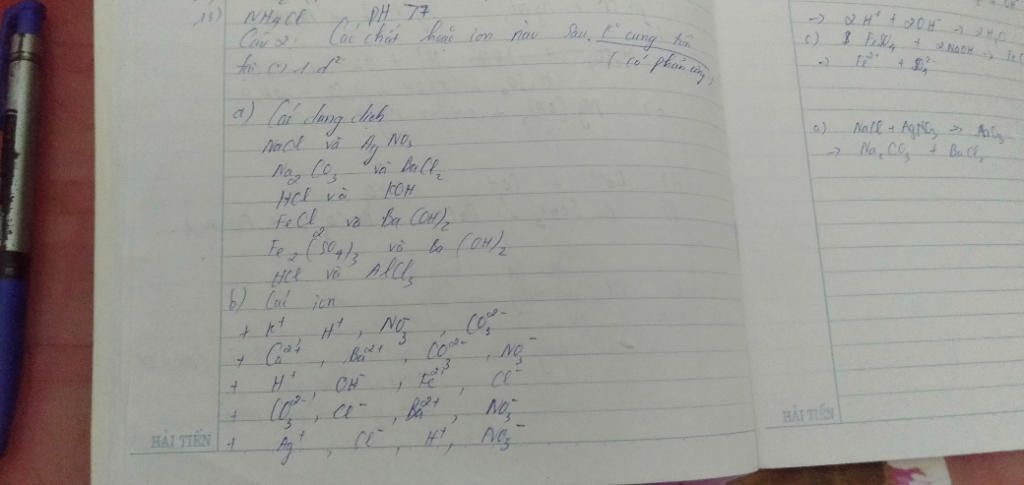 13) NH4Cl pH
Câu 2: Các chất hoặc ion nào sau, k° cùng tồn
tại (có phản ứng)
a) Các dung dịch
NaCl và AgNO3
Na2CO3 và BaCl2
HCl và KOH
FeCl2 và Ba(OH)2
Fe2(SO4)3 và Ba(OH)2
HCl và AlCl3
b) Các ion
+ K+ H+, NO3-, CO3 2-
+ Ca2+, Ba2+, CO3 2-, NO3-
+ H+, OH-, Fe2+, Cl-
+ CO3 2-, Cl-, Ba2+, NO3-
+ Ag+, Cl-, H+, NO3-
HẢI TIẾN
-> 2H+ + 2OH- -> 2H2O
c) FeSO4 + 2NaOH ->
-> Fe2+ +
a) NaCl + AgNO3 =>
-> Na2CO3 + BaCl2
HẢI TIẾN